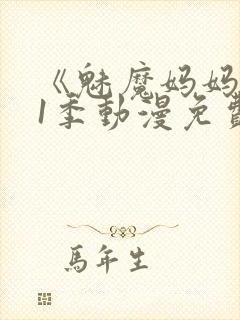 《魅魔妈妈
1季動漫免費
馬年生